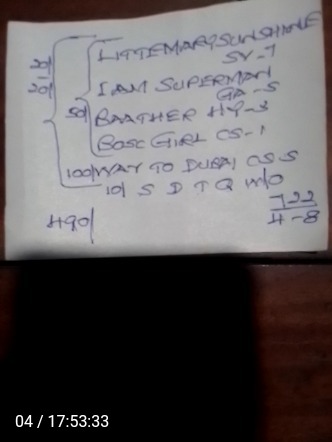 LITTEMARYSUNSHINE
SY-7
I AM SUPERMAN
GA-5
20/
20/
50/ BAATHER HY-3
BOSC GIRL CS-1
100/ WAY TO DUBAI CSS
10/ S D T Q W/O
490/
722
4-8
04 / 17:53:33